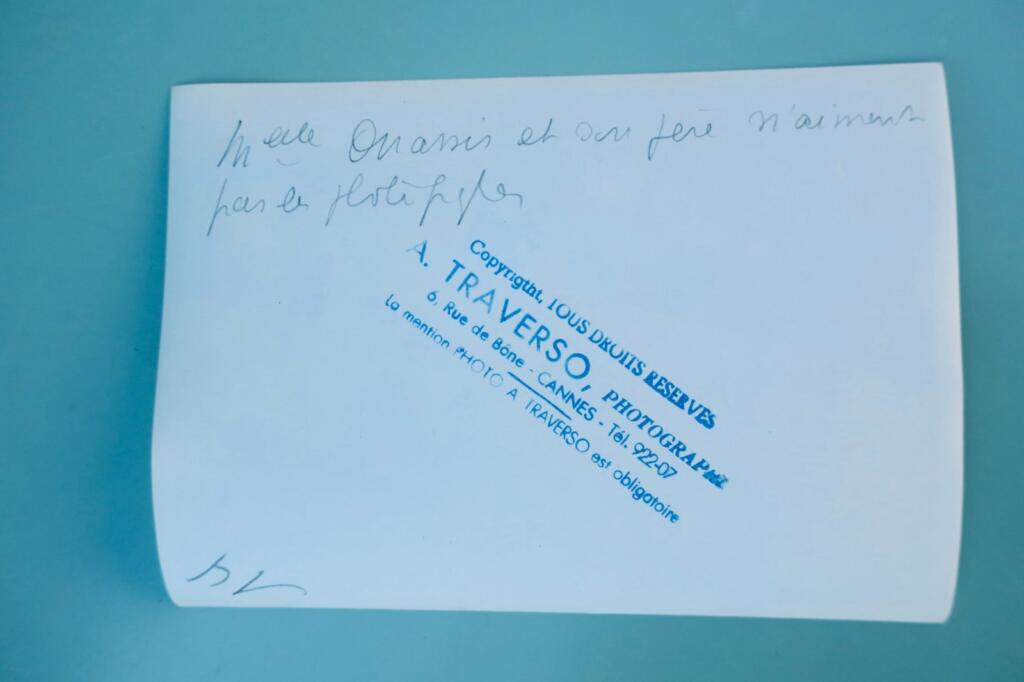 Melle Onassis et son père n'aiment
pas les photographes
Copyrigtht, TOUS DROITS RESERVES
A. TRAVERSO, PHOTOGRAPHE
6, Rue de Bône - CANNES - Tél. 922-07
la mention PHOTO A TRAVERSO est obligatoire